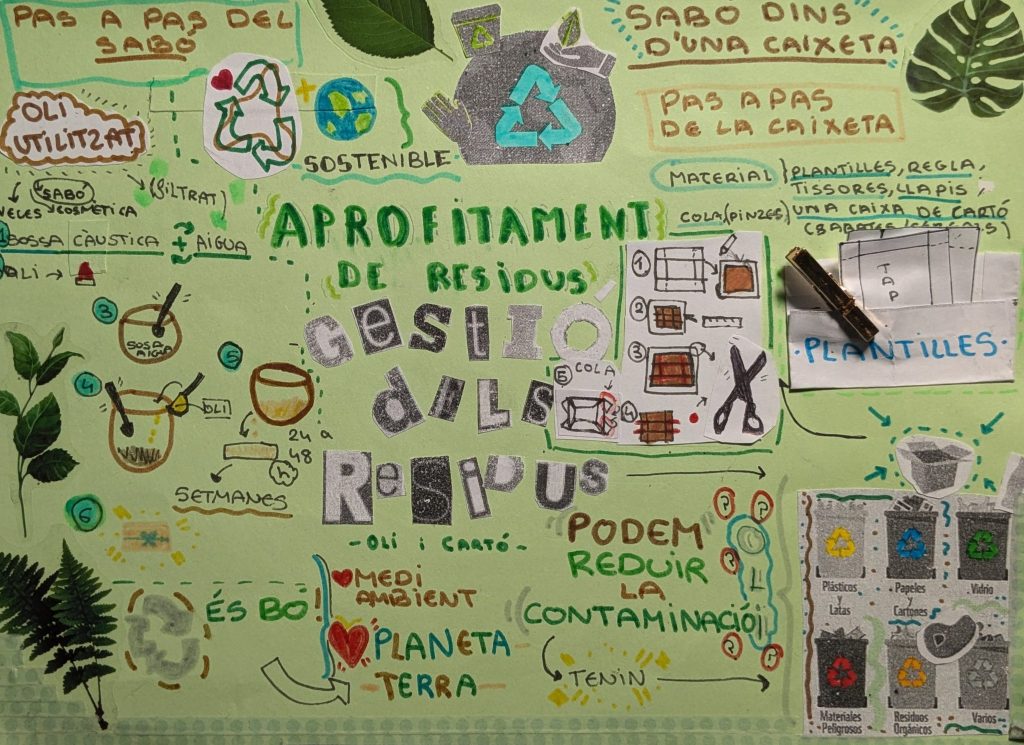 PAS A PAS DEL
SABÓ
OLI
UTILITZAT
SOSTENIBLE
SABÓ
(FILTRAT)
VECES COSMÈTICA
BOSSA CÀUSTICA + AIGUA
OLI →
3
SOSA
AIGUA
4
OLI
5
24 a
48
(h)
SETMANES
6
SABÓ DINS
D'UNA CAIXETA
PAS A PAS
DE LA CAIXETA
MATERIAL } PLANTILLES, REGLA,
TISSORES, LLAPIS
COLA, (PINZES) UNA CAIXA DE CARTÓ
APROFITAMENT
DE RESIDUS
GESTIÓ
DELS
RESIDUS
- OLI I CARTÓ -
1
2
3
5 COLA
4
TAP
· PLANTILLES ·
ÉS BO!
MEDI
AMBIENT
PLANETA
- TERRA -
PODEM
REDUIR
LA
CONTAMINACIÓ
TENIN
Plásticos
y
Latas
Papeles
y
Cartones
Vidrio
Materiales
Peligrosos
Residuos
Orgánicos
Varios